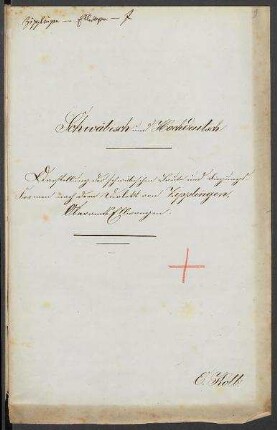 Zipplingen – Ellwangen – J
Schwäbisch und Hochdeutsch
Darstellung der schwäbischen Laute und Biegungs
formen nach dem Dialekt von Zipplingen,
Oberamts Ellwangen.